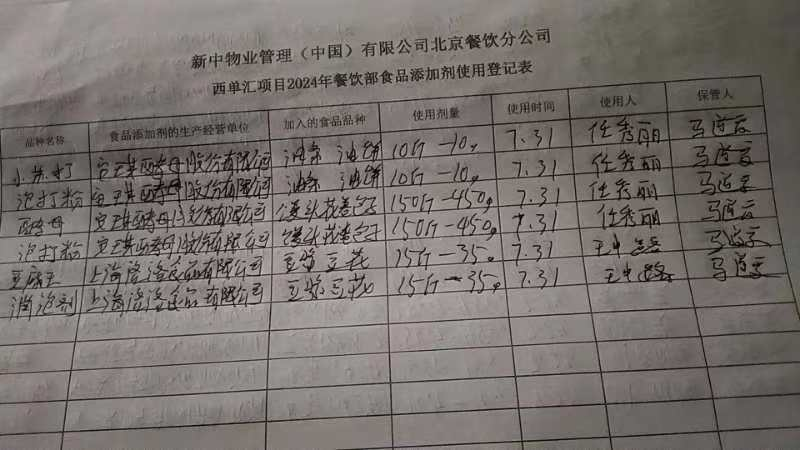 新中物业管理（中国）有限公司北京餐饮分公司
西单汇项目2024年餐饮部食品添加剂使用登记表
品种名称 食品添加剂的生产经营单位 加入的食品品种 使用剂量 使用时间 使用人 保管人
小苏打 安琪酵母股份有限公司 油条 油饼 10g-10g 7.31 任秀丽 马
泡打粉 安琪酵母股份有限公司 油条 油饼 10g-10g 7.31 任秀丽 马
酵母 安琪酵母股份有限公司 馒头花卷包子 150g-450g 7.31 任秀丽 马
泡打粉 安琪酵母股份有限公司 馒头花卷包子 150g-450g 7.31 任秀丽 马
豆腐王 上海 食品有限公司 豆浆豆花 15g-35g 7.31 王中 马
消泡剂 上海 食品有限公司 豆浆豆花 15g-35g 7.31 王中 马